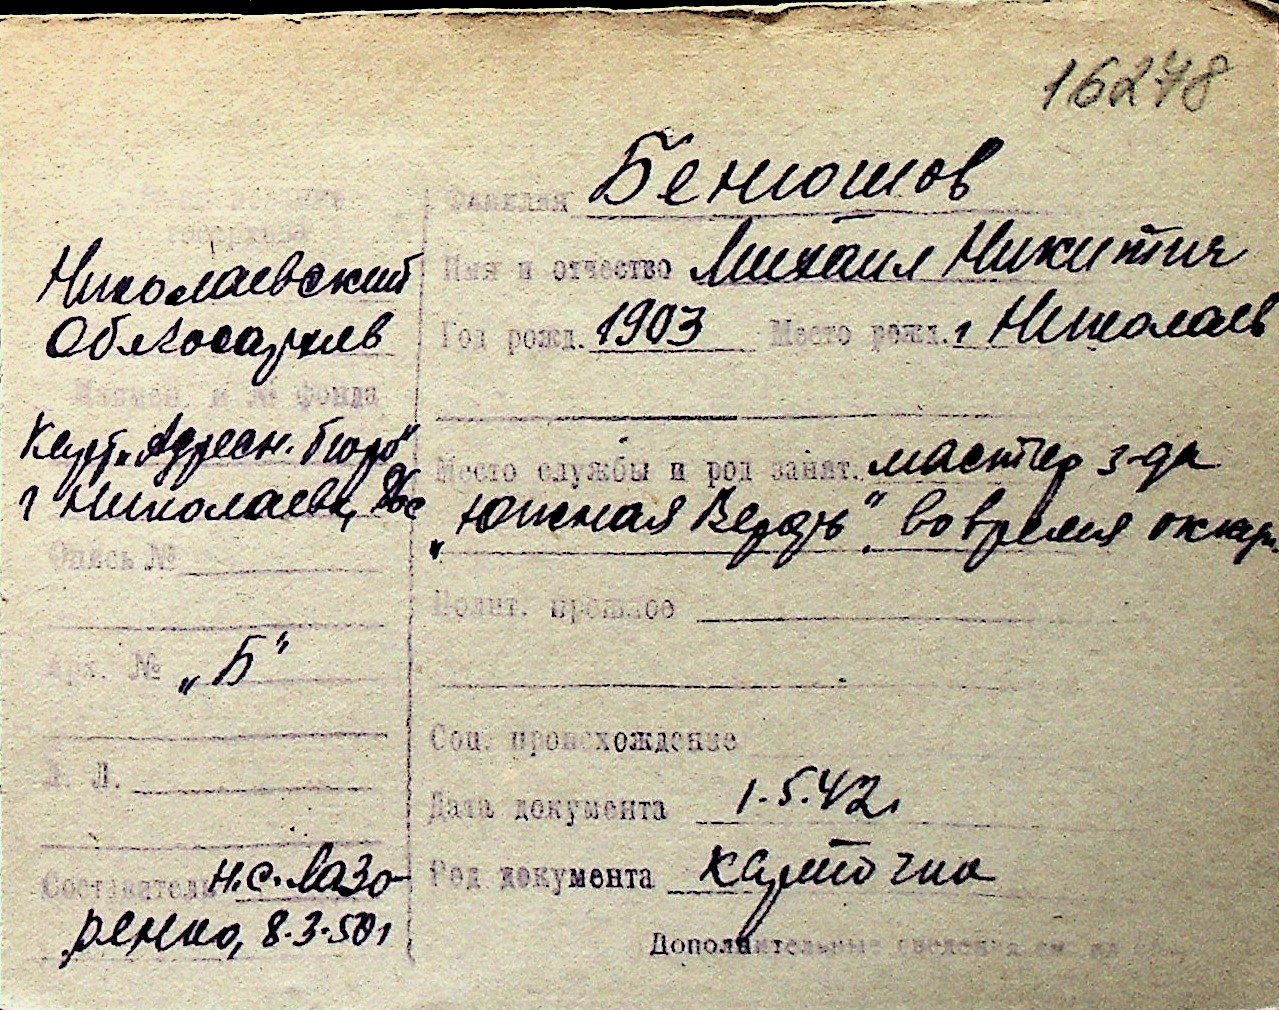 16248
Фамилия Бенюшов
госархива
Николаевский
Имя и отчество Михаил Никитич
Облгосархив
Год рожд. 1903 Место рожд. г Николаев
Наимен. и № фонда
Карт. „Адресн. бюро"
Место службы и род занят. мастер з-да
г Николаева,
„Южная Верфь" во время оккуп.
Опись №
Полит. прошлое
Арх. № „Б"
Соц. происхождение
Л. Л.
Дата документа 1.5.42г
Составитель Н.С. Лазо-
Род документа карточка
ренко, 8.3.50г
Дополнительные сведения см. на